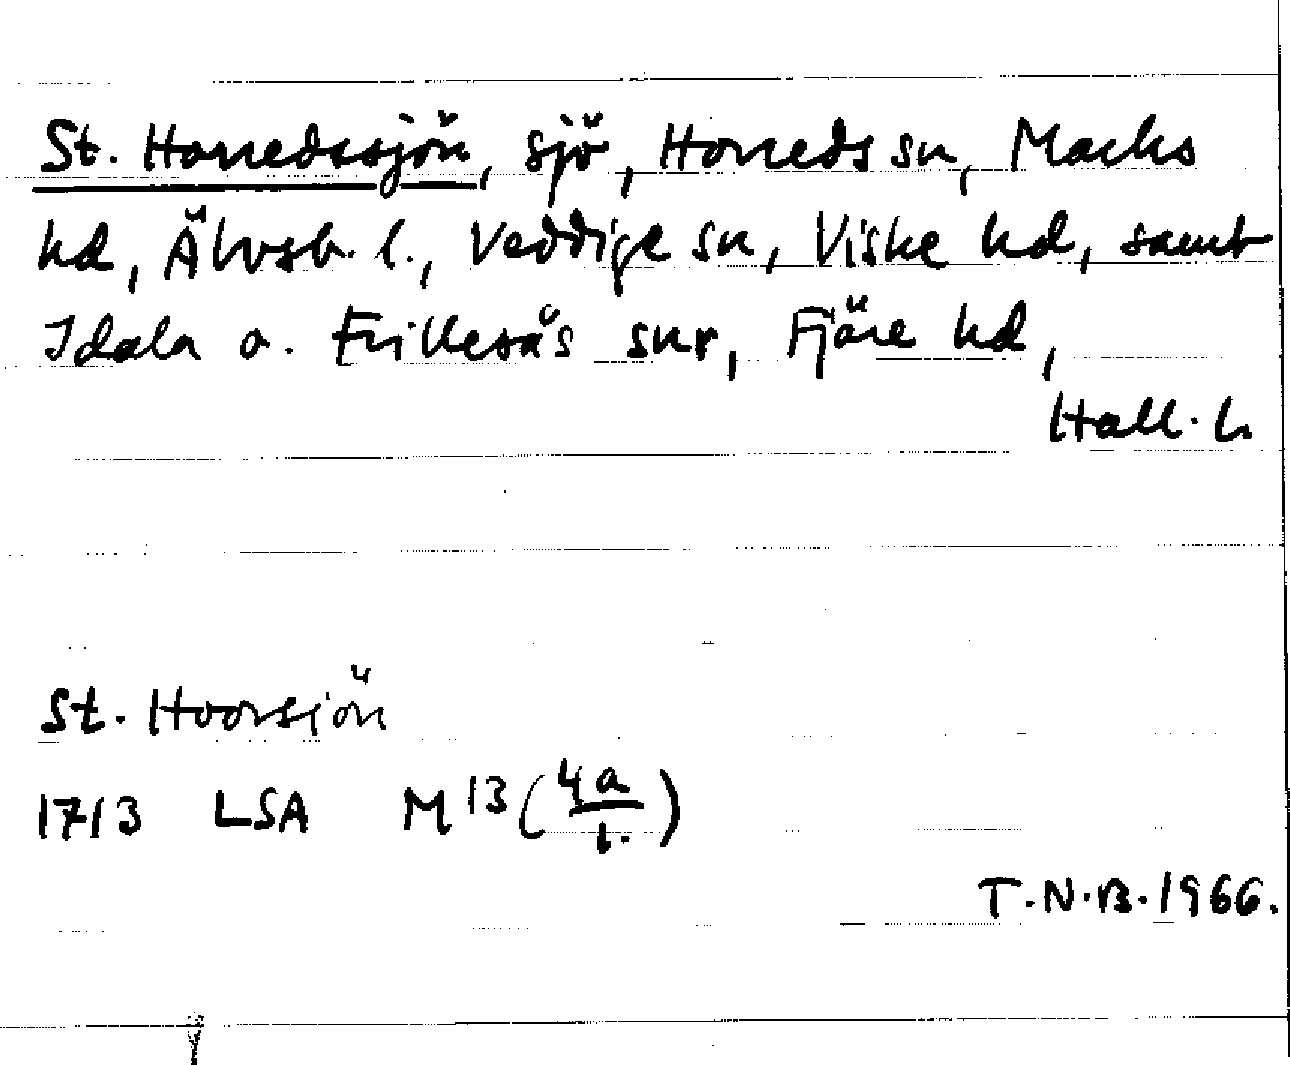 St. Horredssjön, sjö, Horreds sn, Marks
hd, Älvsb. l., Veddige sn, Viske hd, samt
Idala o. Frillesås snr, Fjäre hd,
Hall. l.
St. Hoorsiön
1713 LSA M13 (4a/1.)
T.N.B. 1966.